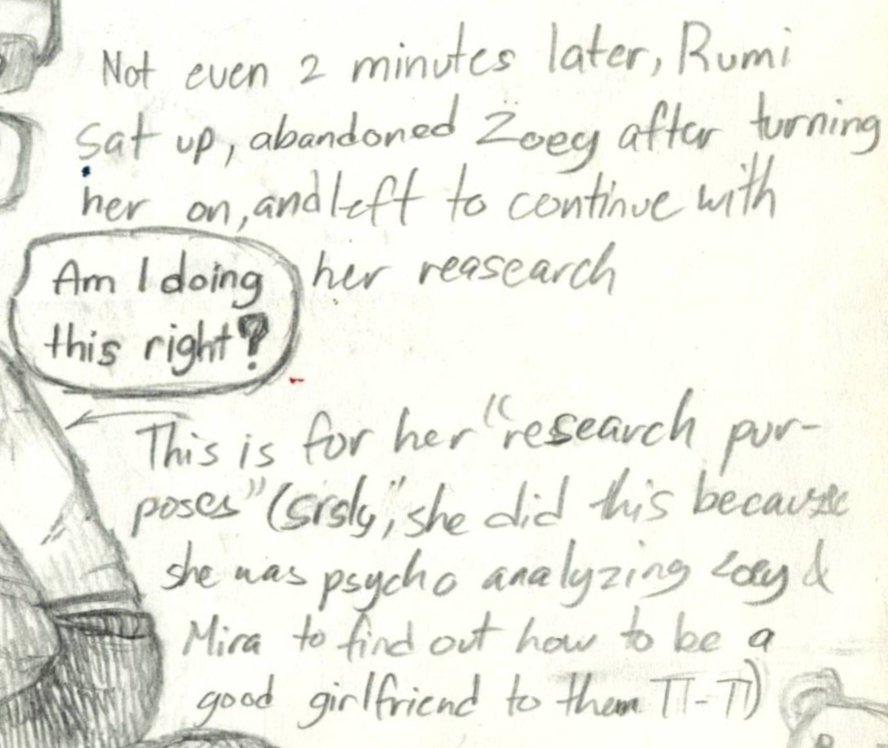 Not even 2 minutes later, Rumi
sat up, abandoned Zoey after turning
her on, and left to continue with
her reasearch
Am I doing
this right?
This is for her "research pur-
poses" (srsly, she did this because
she was psycho analyzing Zoey &
Mira to find out how to be a
good girlfriend to them TT-TT)